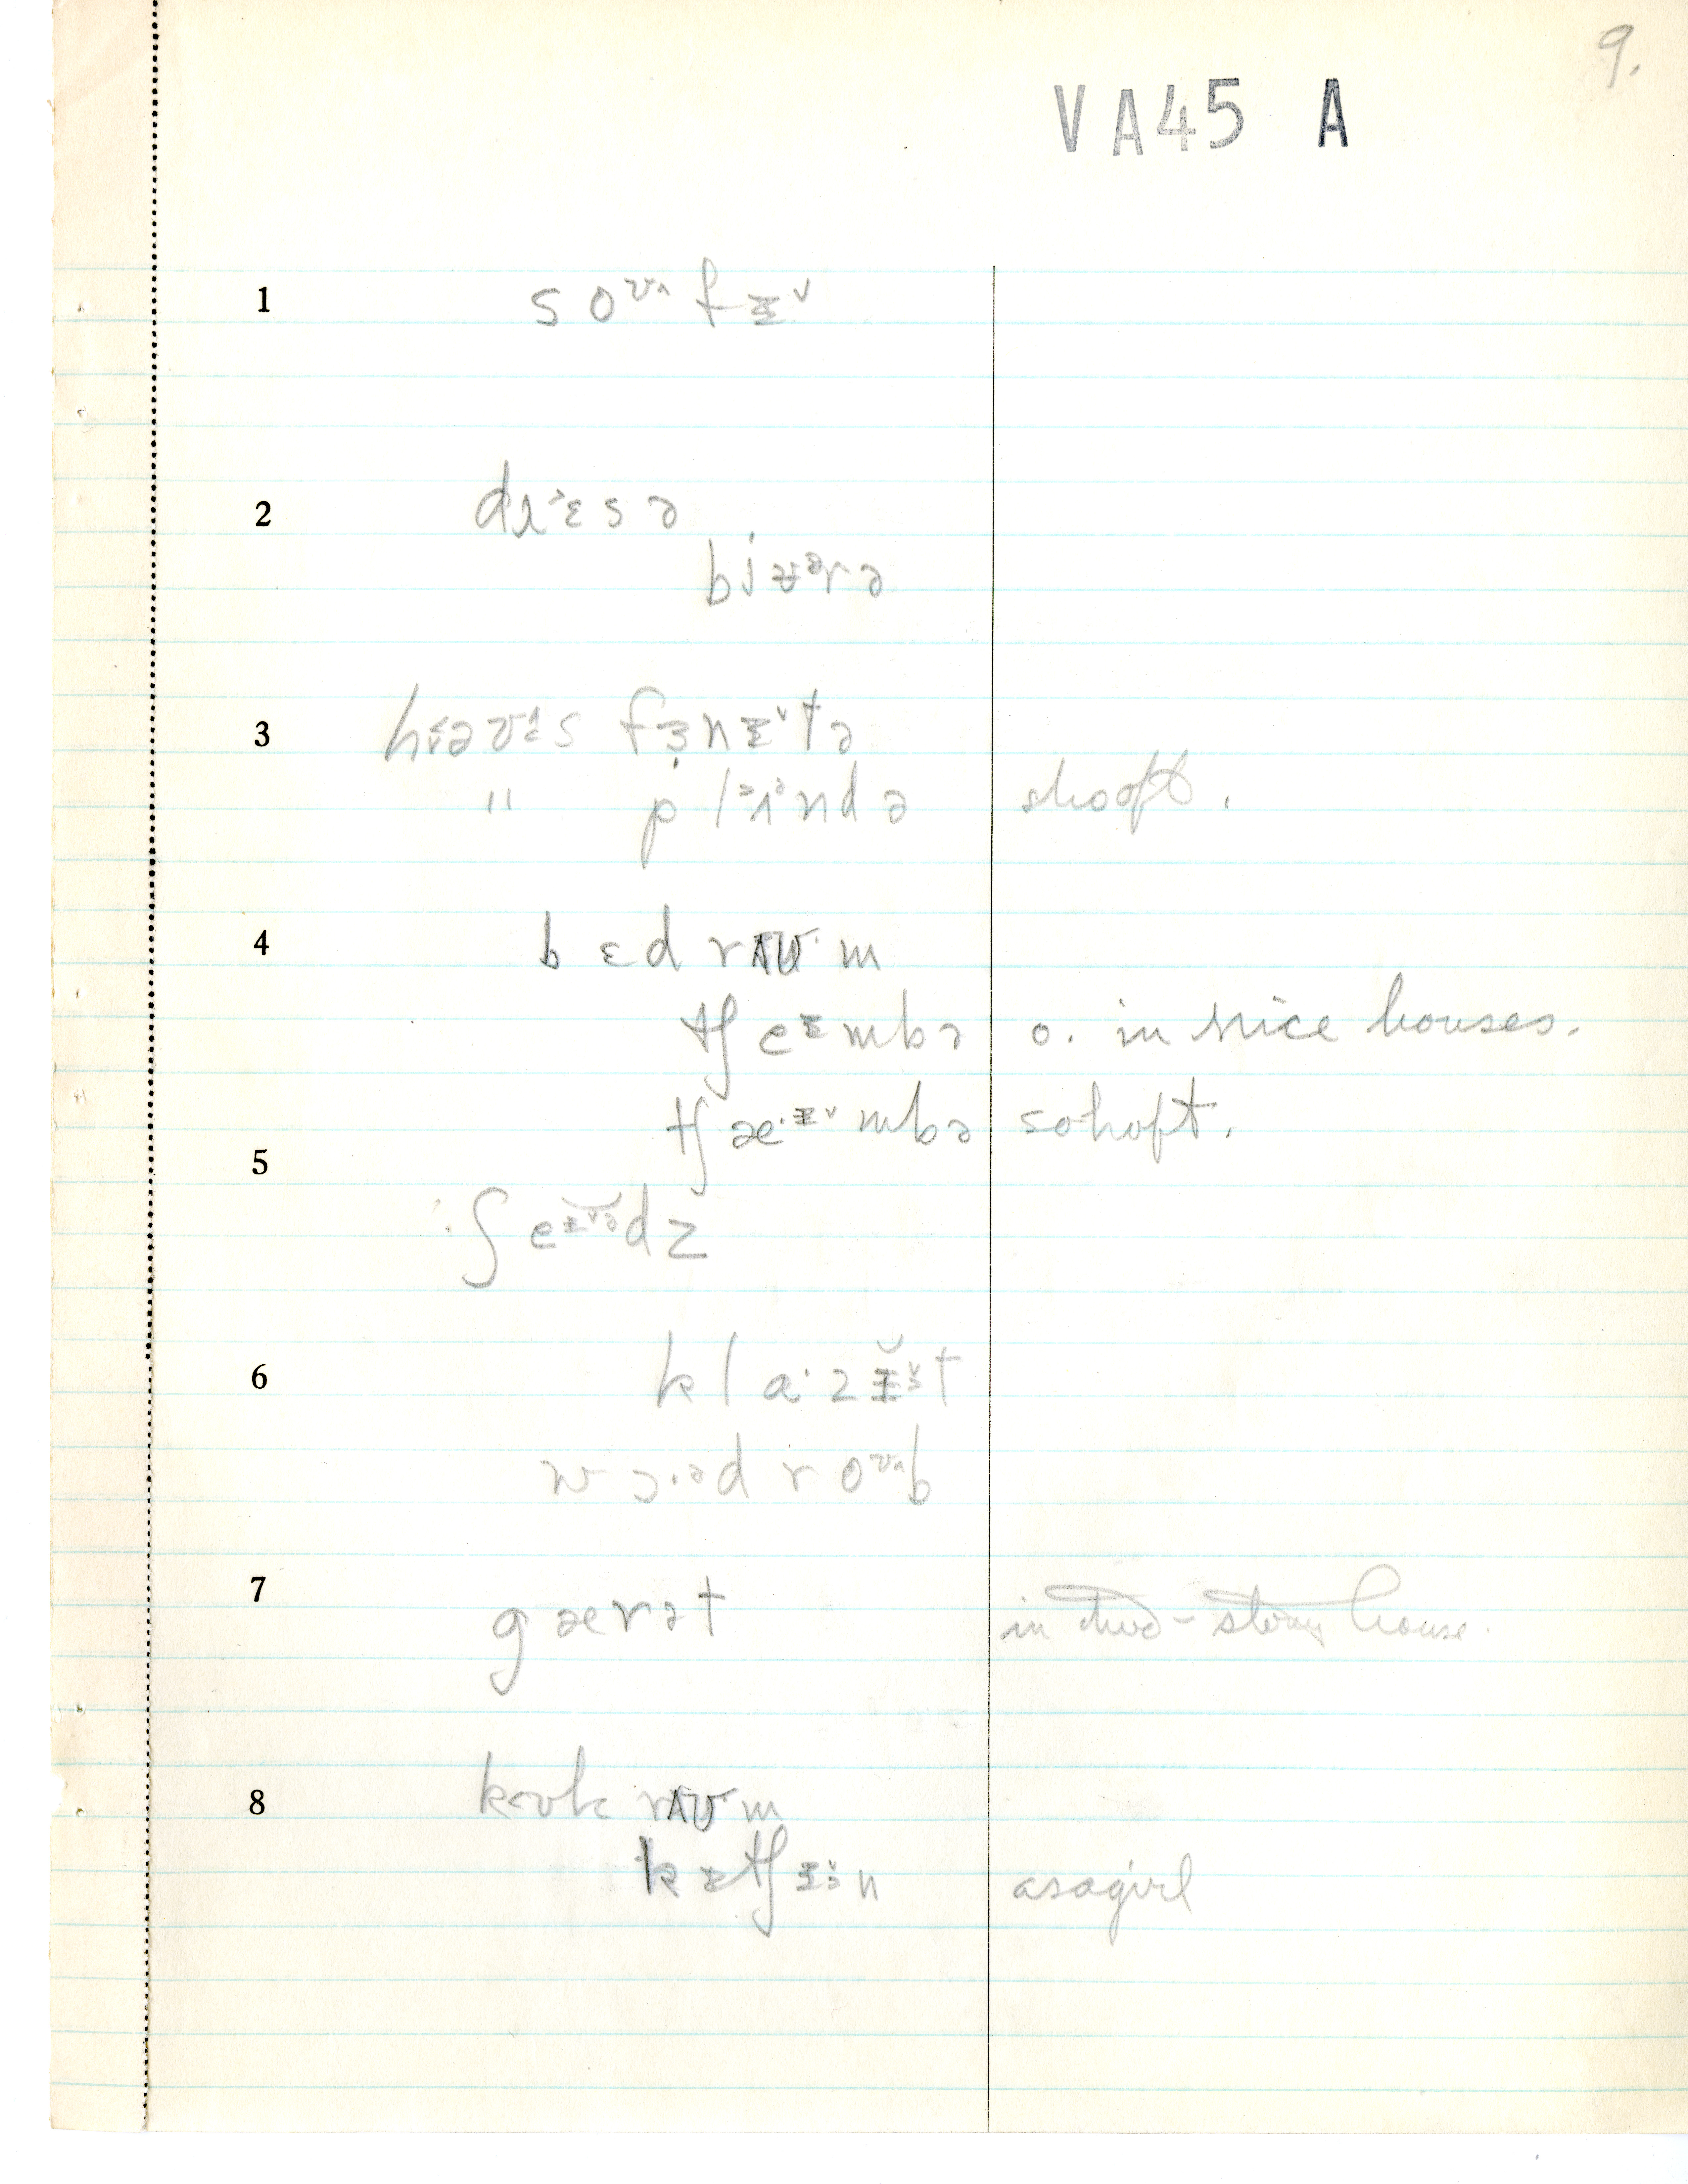 9.
VA45 A
1 s oᶷ^ f ɪ˅
2 d ɛ s ə
bjʉᵊrə
3 f ɜ n ɪ˅ t ə
" p l n d ə shoft.
4 b ɛ d r ʌʊ m
tʃ eᶤ m b ə o. in nice houses.
tʃ æ·ᶤ˅ m b ə sohoft.
5 ʃ e d z
6 k l a· z ɪ t
w ɔ·ᵊ d r oᶷ^ b
7 g æ r ə t in two-story house.
8 k ʊ k r ʌʊ m
k ɪ tʃ ɪ n as a girl